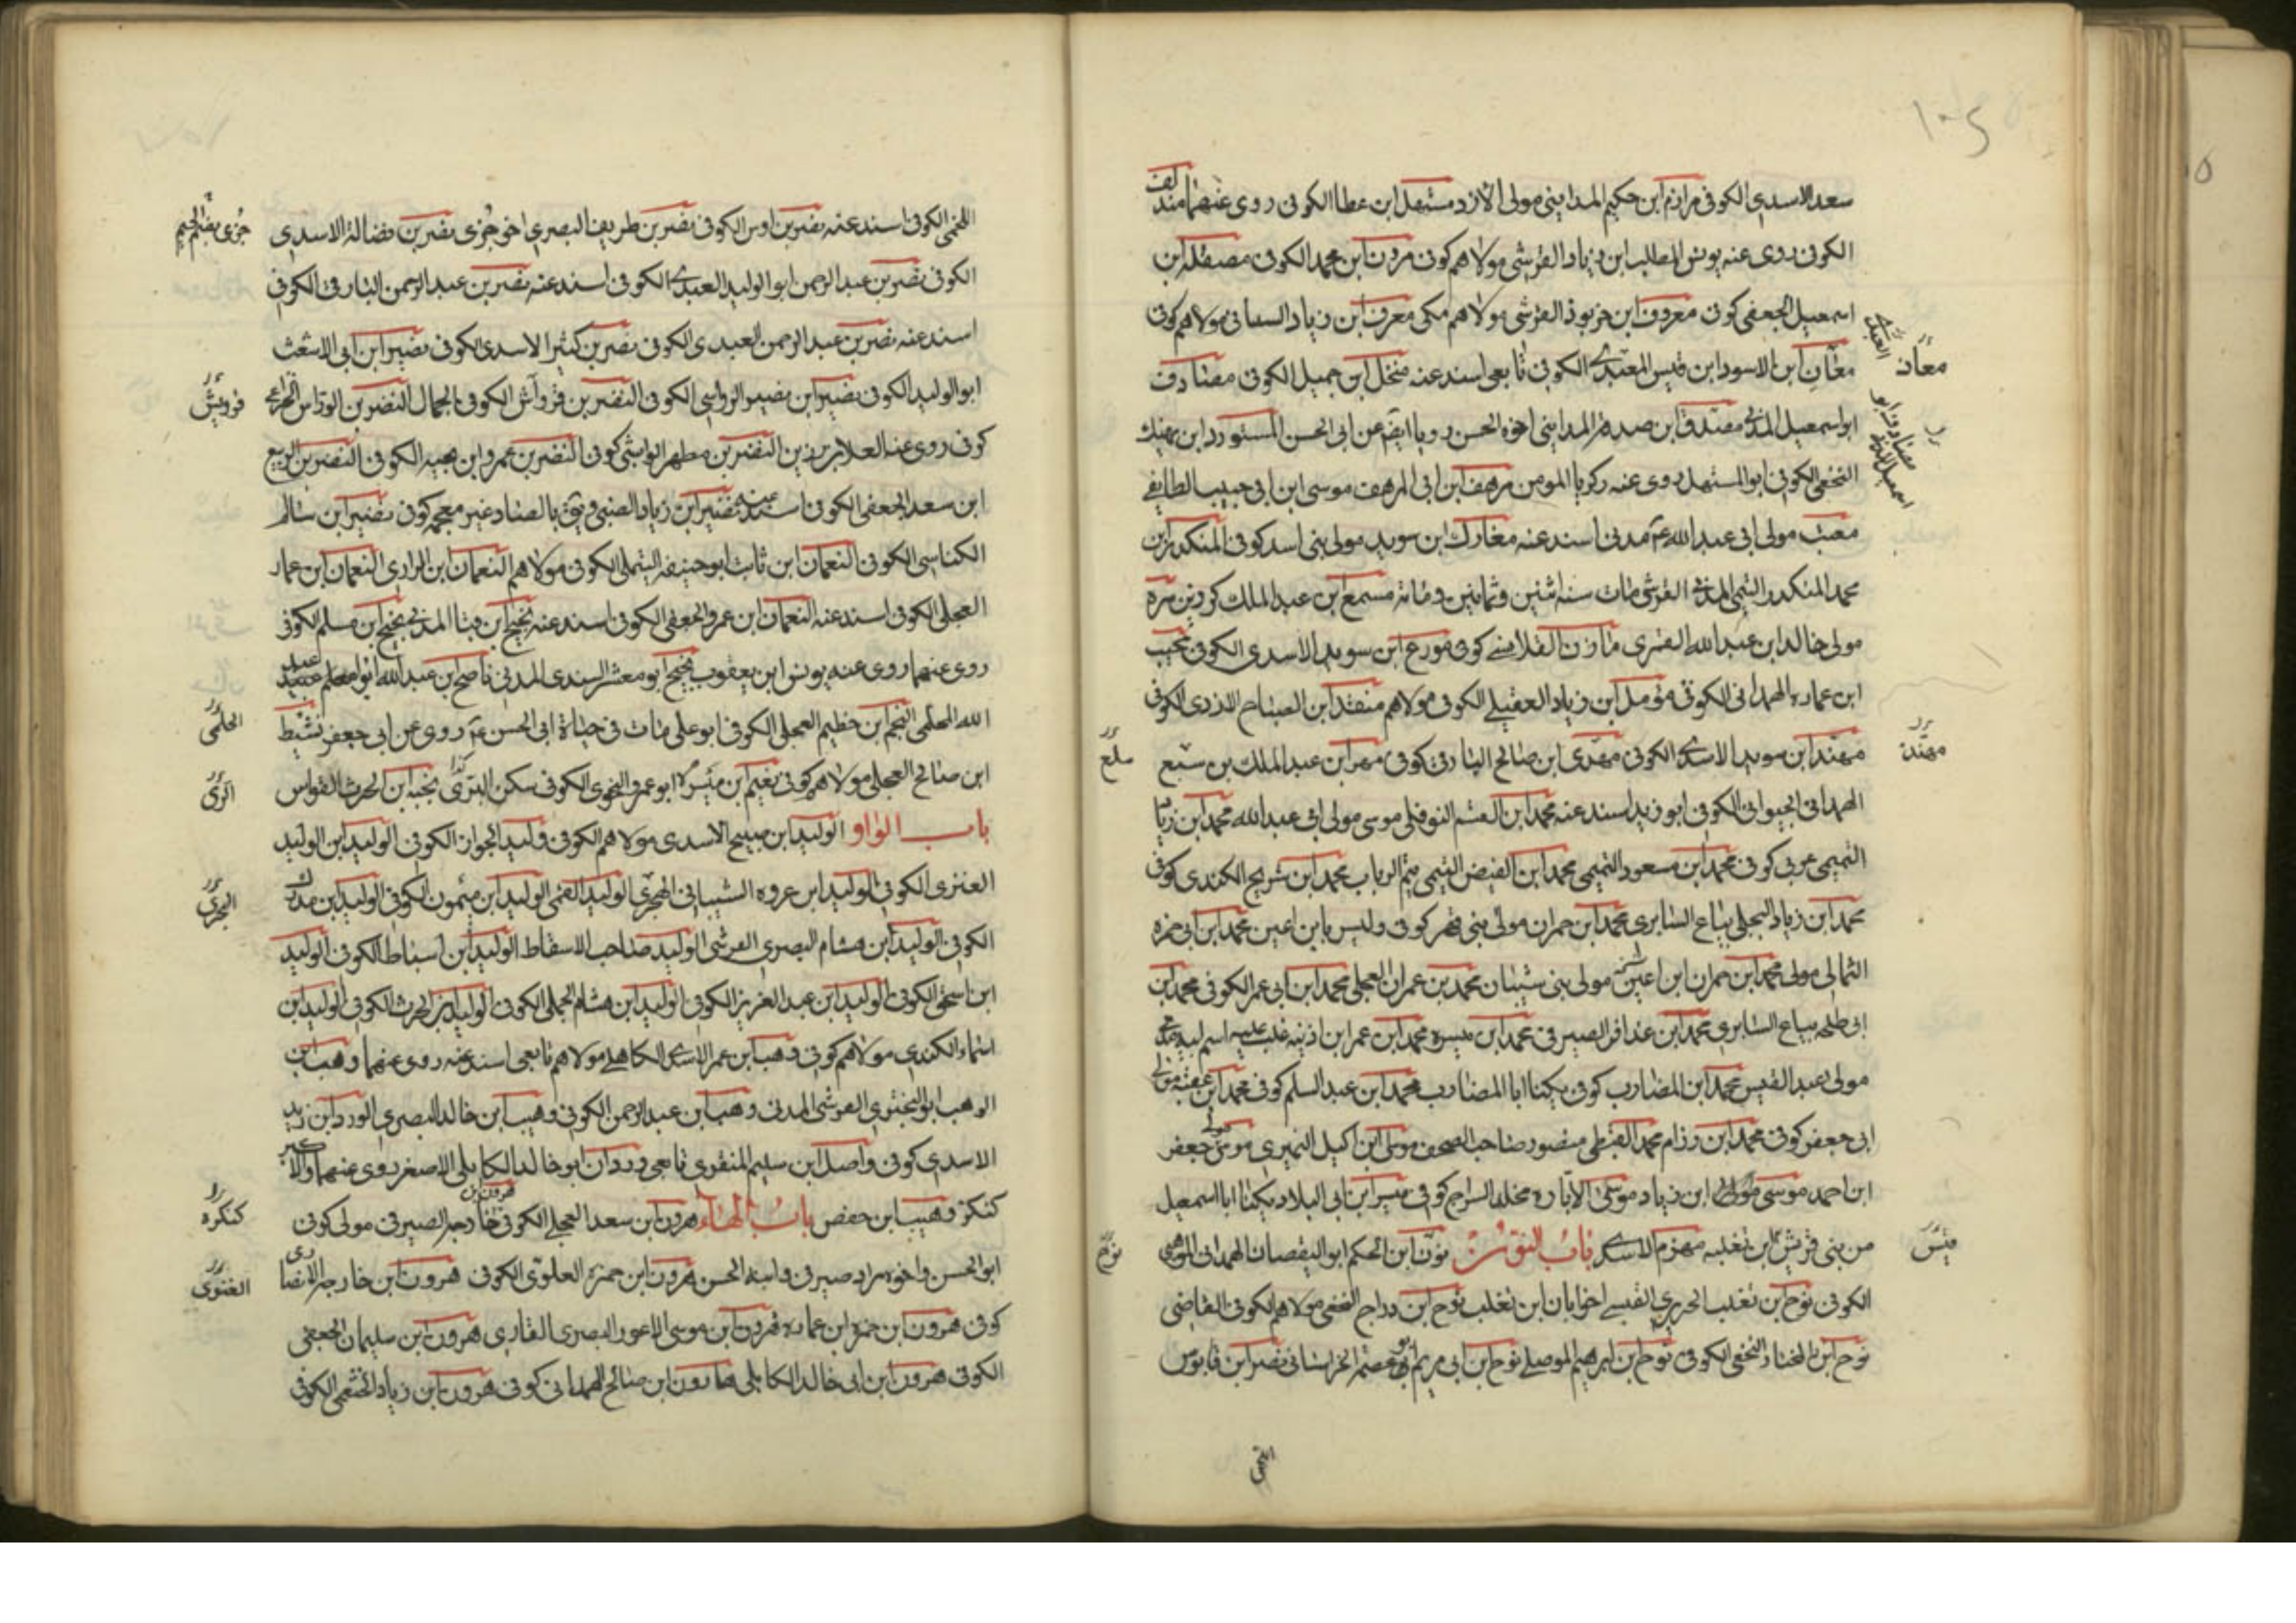 سعد الاسدي الكوفي مرازم ابن حكيم المدايني مولى الازد مشمعل ابن عطا الكوفي روى عنهما مندلف
الكوفي روى عنه يونس المطلب ابن زياد القرشي مولاهم كوفي مروان ابن محمد الكوفي مصقله ابن
اسمعيل الجعفي كوفي معروف ابن خربوذ القرشي مولاهم مكي معرف ابن زياد السباني مولاهم كوفي
معان ابن الاسود ابن قيس العبدي الكوفي تابعي اسند عنه منخل ابن جميل الكوفي مصادف
ابو اسمعيل المدني مصدق ابن صدقة المدايني اخوه الحسن رويا ايضا عن ابي الحسن المستورد ابن نهيك
النخعي الكوفي ابو المستهل روى عنه زكريا المومن مرهف ابن ابي المرهف موسى ابن ابي حبيب الطايفي
معتب مولى ابي عبد الله ع مدني اسند عنه مغارك ابن سويد مولى بني اسد كوفي المنكدر بن
محمد المنكدر التيمي المدني القرشي مات سنة اثنين وثمانين ومائة مسمع ابن عبد الملك كردين مرة
مولى خالد ابن عبد الله القسري مازن القلانسي كوفي مورع ابن سويد الاسدي الكوفي نجيب
ابن عماره الهمداني الكوفي مؤمل ابن زياد العقيلي الكوفي مولاهم منقذ ابن الصباح الازدي الكوفي
مهند ابن سويد الاسدي الكوفي مهدي ابن صالح البارقي كوفي مهر ابن عبد الملك بن سبع
الهمداني الخيواني الكوفي ابو زيد اسند عنه محمد ابن القسم النوفلي موسى مولى ابي عبد الله محمد ابن زياد
التميمي عربي كوفي محمد ابن مسعود التميمي محمد ابن الفيض التيمي تيم الرباب محمد ابن شريح الكندي كوفي
محمد ابن زياد البجلي بياع السابري محمد ابن حمران مولى بني فهر كوفي وليس بابن اعين محمد ابن ابي حمزه
الثمالي مولى محمد ابن حمران ابن اعين مولى بني شيبان محمد بن عمران العجلي محمد ابن ابي عمر الكوفي محمد ابن
ابي طلحه بياع السابري محمد ابن عذافر الصيرفي محمد ابن ميسره محمد ابن عمر ابن اذينه غلب عليه اسم ابيه
مولى عبد القيس محمد ابن المضارب كوفي يكنا ابا المضارب محمد ابن عبد السلم كوفي محمد ابن عقبه مولى
ابي جعفر كوفي محمد ابن رزام محمد القبطي منصور صاحب الصحف موسى ابن اكيل النميري موسى جعفر
ابن احمد موسى ابن زياد موسى الابار مخلد السراج كوفي ميسر ابن ابي البلاد يكنا ابا اسمعيل
من بني قريش ابن ثعلبه مهزم الاسدي باب النون نون ابن الحكم ابو اليقصان الهمداني
الكوفي نوح ابن تغلب الحريري القيسي اخو ابان ابن تغلب نوح ابن دراج النخعي مولاهم الكوفي القاضي
نوح ابن المختار النخعي الكوفي نوح ابن ابرهيم الموصلي نوح ابن ابي مريم ابو عصمة الخراساني نصر ابن قابوس
معان
مهند
اللخمي الكوفي اسند عنه نصر بن اوس الكوفي نصر بن طريف البصري اخو جزى نصر بن فضالة الاسدي
جزى بضم الجيم
الكوفي نصر بن عبد الرحمن ابو الوليد العبدي الكوفي اسند عنه نصر بن عبد الرحمن البارقي الكوفي
اسند عنه نصر بن عبد الرحمن العبدي الكوفي نصر بن كثير الاسدي الكوفي نصير ابن ابي الاشعث
ابو الوليد الكوفي نصير ابن نصير الرواسي الكوفي النضر بن قرواش الكوفي الجمال النضر بن الوراس الخزاعي
كوفي روى عنه العلا بن رزين النضر بن مطهر الوابشي كوفي النضر بن عمرو ابن نجيه الكوفي النضر بن الربيع
ابن سعد الجعفي الكوفي اسند عنه نضير ابن زياد الضبي ويق بالصاد غير معجمه كوفي نضير ابن سالم
الكناسي الكوفي النعمان ابن ثابت ابو حنيفه التيملي الكوفي مولاهم النعمان ابن الرازي النعمان ابن عمار
العجلي الكوفي اسند عنه النعمان ابن عمرو الجعفي الكوفي اسند عنه نجيح ابن قبا المدني نجيح ابن مسلم الكوفي
روى عنهما روى عنه يونس ابن يعقوب نجيح ابو معشر السندي المدني ناصح ابن عبد الله ابو
الله المحلمي النجم ابن حظيم العجلي الكوفي ابو علي مات في حياة ابي الحسن ع روى عن ابي جعفر نشيط
ابن صالح العجلي مولاهم كوفي نعيم ابن ميسرة ابو عمرو النحوي الكوفي سكن الري نخبه ابن الحرث القواس
باب الواو الوليد ابن صبيح الاسدي مولاهم الكوفي وليد الجواز الكوفي الوليد ابن الوليد
العنزي الكوفي الوليد ابن عروه الشيباني الهجري الوليد القمي الوليد ابن ميمون الكوفي الوليد ابن مدرك
الكوفي الوليد ابن هشام البصري القرشي الوليد صاحب الاسقاط الوليد ابن اسباط الكوفي الوليد
ابن اسحق الكوفي الوليد ابن عبد العزيز الكوفي الوليد ابن هشام البجلي الكوفي الوليد ابن الحرث الكوفي الوليد ابن
اسماء الكندي مولاهم كوفي وهب ابن عمر الاسدي الكاهلي مولاهم تابعي اسند عنه روى عنهما وهب ابن
الوهب ابو البختري القرشي المدني وهب ابن عبد الرحمن الكوفي وهيب ابن خالد البصري الورد ابن زيد
الاسدي كوفي واصل ابن سليم المنقري تابعي وردان ابو خالد الكابلي الاصغر روى عنهما والاكبر
كنكر وهيب ابن حفص باب الهاء هرون ابن سعد العجلي الكوفي هرون بن خارجه الصيرفي مولى كوفي
كنكره
ابو الحسن واخوه مراد صيرفي وابنه الحسن هرون ابن حمزه العلوي الكوفي هرون ابن خارجه الانصاري
الغنوي
كوفي هرون ابن حمزة ابن عماره هرون ابن موسى الاعور البصري القاري هرون ابن سليمان الجعفي
الكوفي هرون ابن ابي خالد الكابلي هارون ابن صالح الهمداني كوفي هرون ابن زياد الخثعمي الكوفي